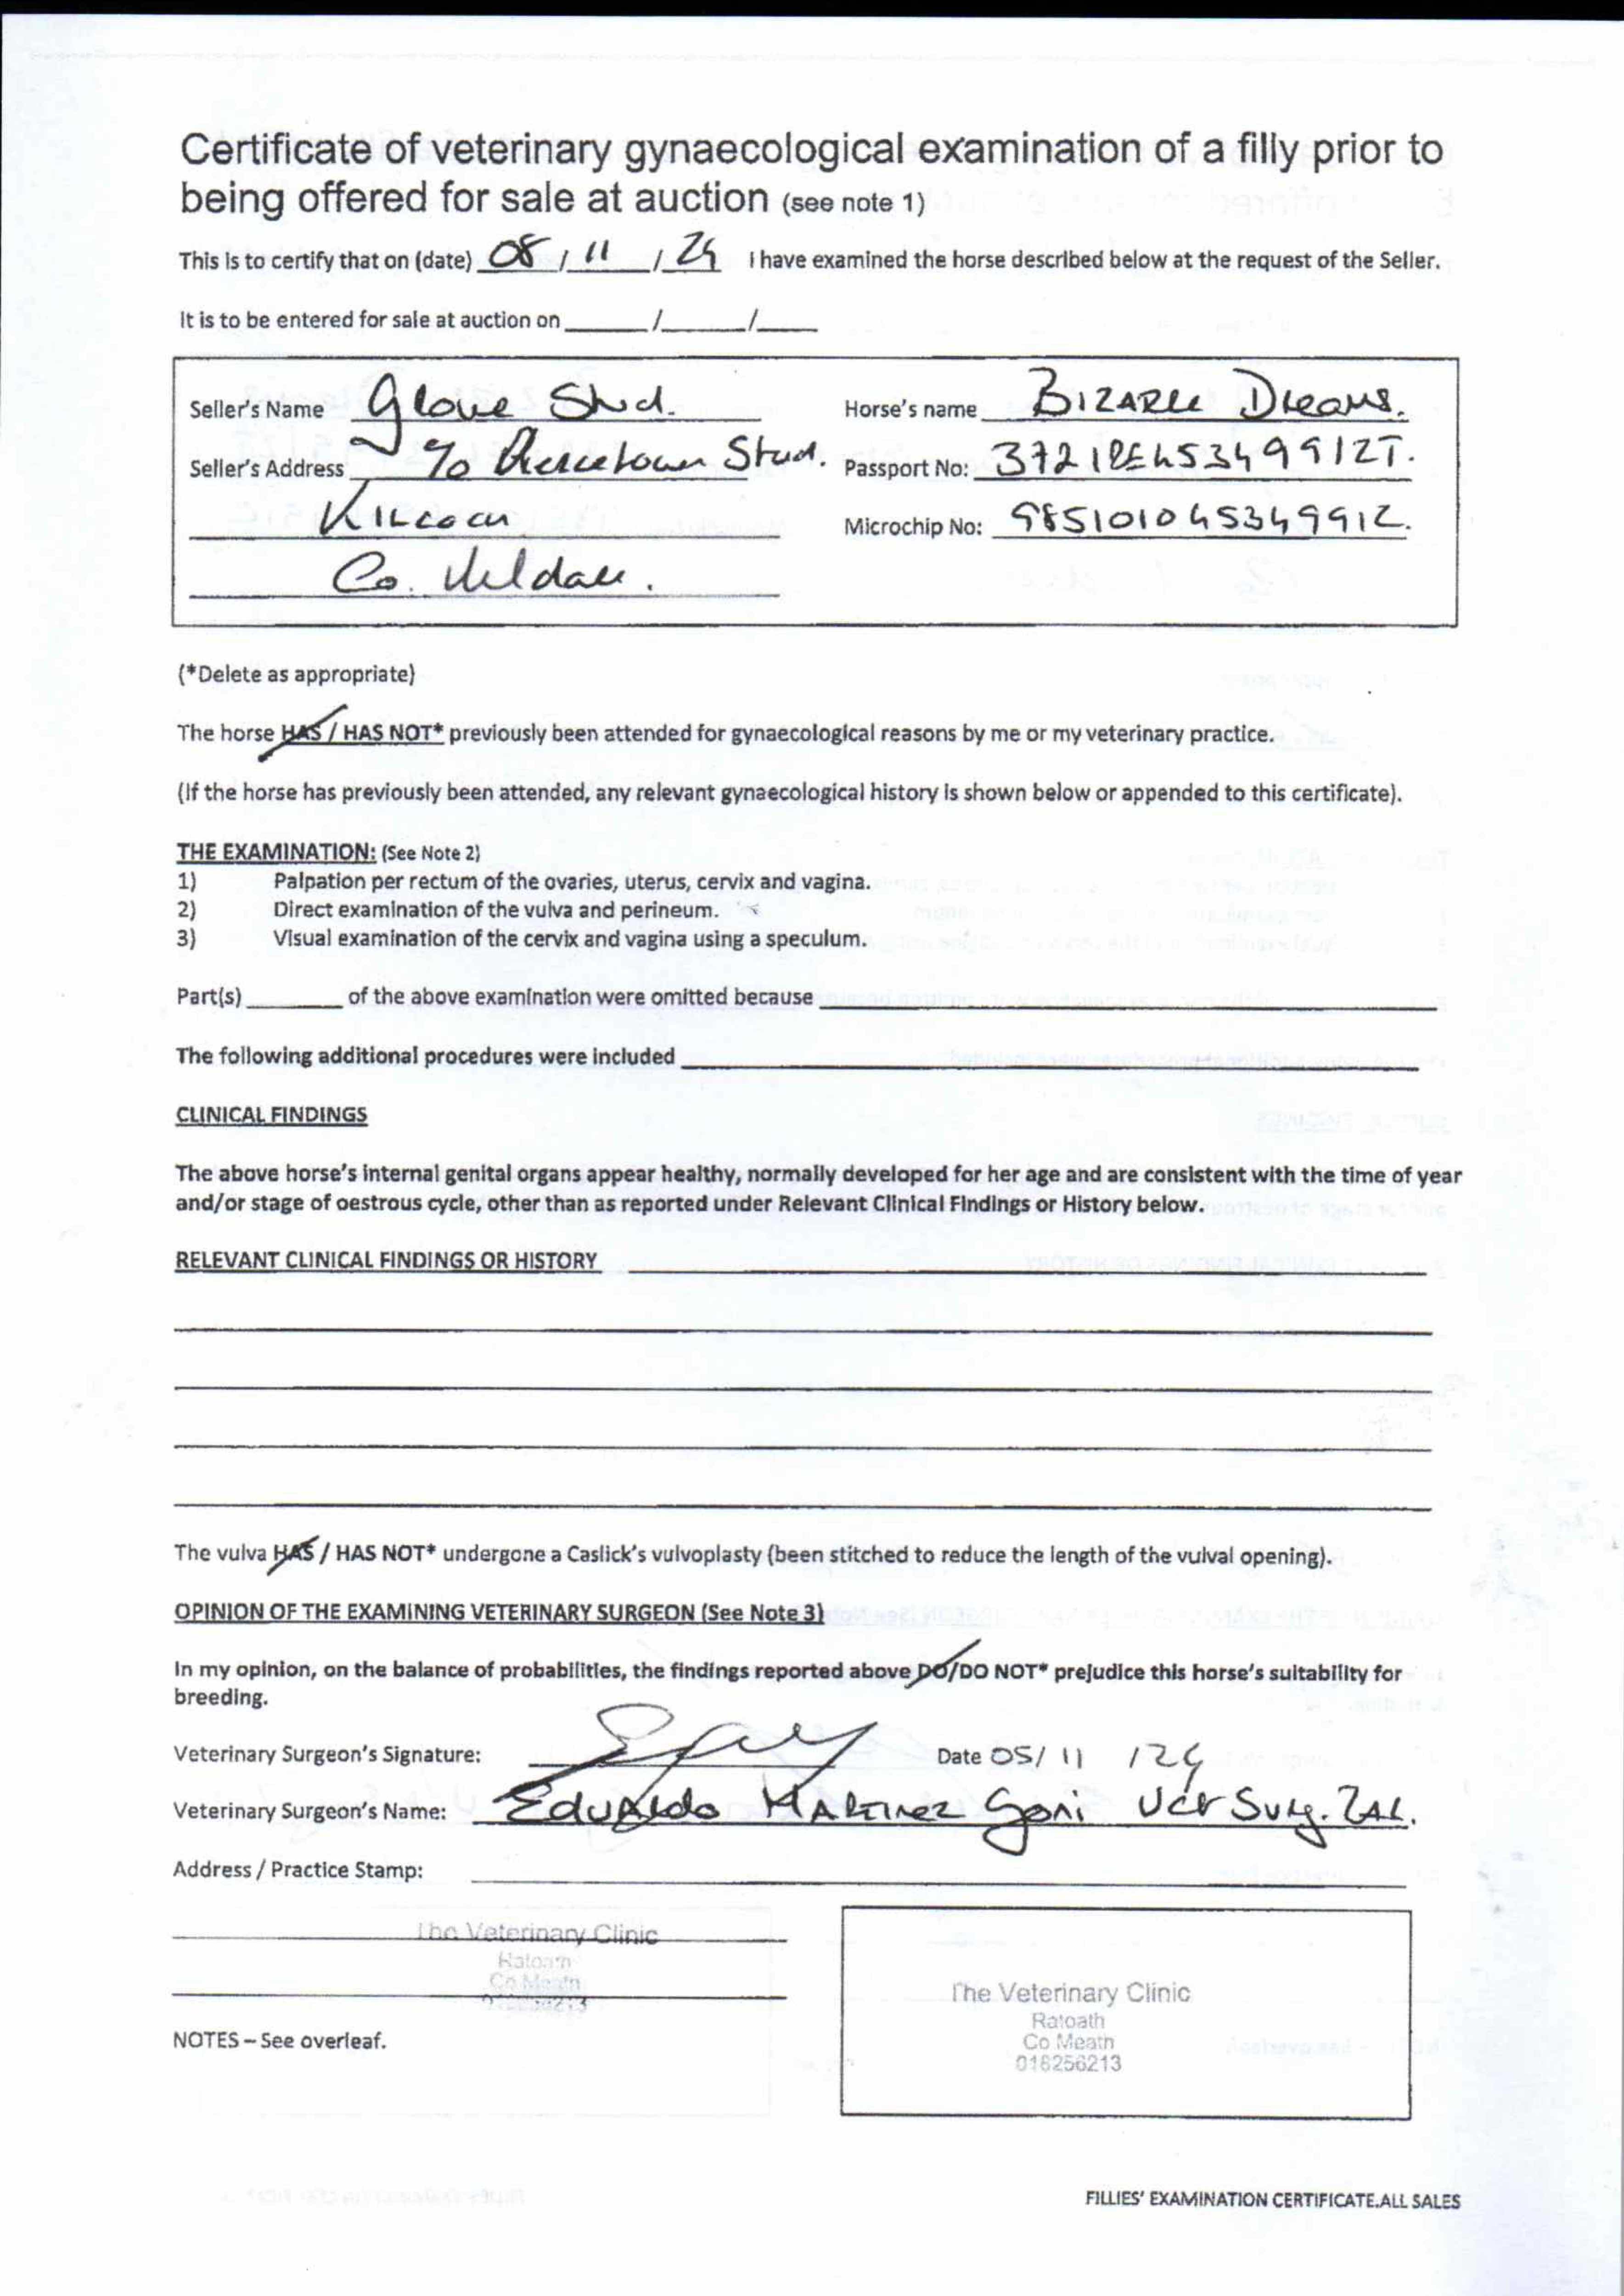 Certificate of veterinary gynaecological examination of a filly prior to
being offered for sale at auction (see note 1)
This is to certify that on (date) 08 / 11 / 24 I have examined the horse described below at the request of the Seller.
It is to be entered for sale at auction on ____ / ____ / ____
Seller's Name Stud. Horse's name Dreams.
Seller's Address c/o Stud. Passport No:
Microchip No: 985101045349912.
Co. Kildare.
(*Delete as appropriate)
The horse HAS / HAS NOT* previously been attended for gynaecological reasons by me or my veterinary practice.
(If the horse has previously been attended, any relevant gynaecological history is shown below or appended to this certificate).
THE EXAMINATION: (See Note 2)
1) Palpation per rectum of the ovaries, uterus, cervix and vagina.
2) Direct examination of the vulva and perineum.
3) Visual examination of the cervix and vagina using a speculum.
Part(s) ____ of the above examination were omitted because ____
The following additional procedures were included ____
CLINICAL FINDINGS
The above horse's internal genital organs appear healthy, normally developed for her age and are consistent with the time of year
and/or stage of oestrous cycle, other than as reported under Relevant Clinical Findings or History below.
RELEVANT CLINICAL FINDINGS OR HISTORY
The vulva HAS / HAS NOT* undergone a Caslick's vulvoplasty (been stitched to reduce the length of the vulval opening).
OPINION OF THE EXAMINING VETERINARY SURGEON (See Note 3)
In my opinion, on the balance of probabilities, the findings reported above DO/DO NOT* prejudice this horse's suitability for
breeding.
Veterinary Surgeon's Signature: Date 05/ 11 /24
Veterinary Surgeon's Name: Eduardo Martinez Goni Vet Surg.
Address / Practice Stamp:
The Veterinary Clinic
Ratoath
Co Meath
018256213
The Veterinary Clinic
Ratoath
Co Meath
018256213
NOTES – See overleaf.
FILLIES' EXAMINATION CERTIFICATE.ALL SALES